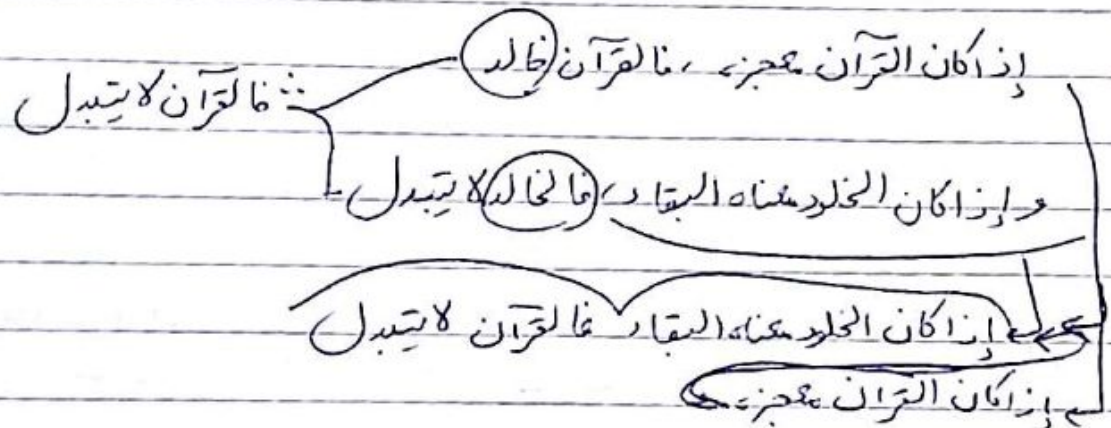 إذا كان القرآن معجزة، فالقرآن خالد
∴ فالقرآن لا يتبدل
وإذا كان الخلود معناه البقاء، فالخالد لا يتبدل
إذا كان الخلود معناه البقاء فالقرآن لا يتبدل
إذا كان القرآن معجزة